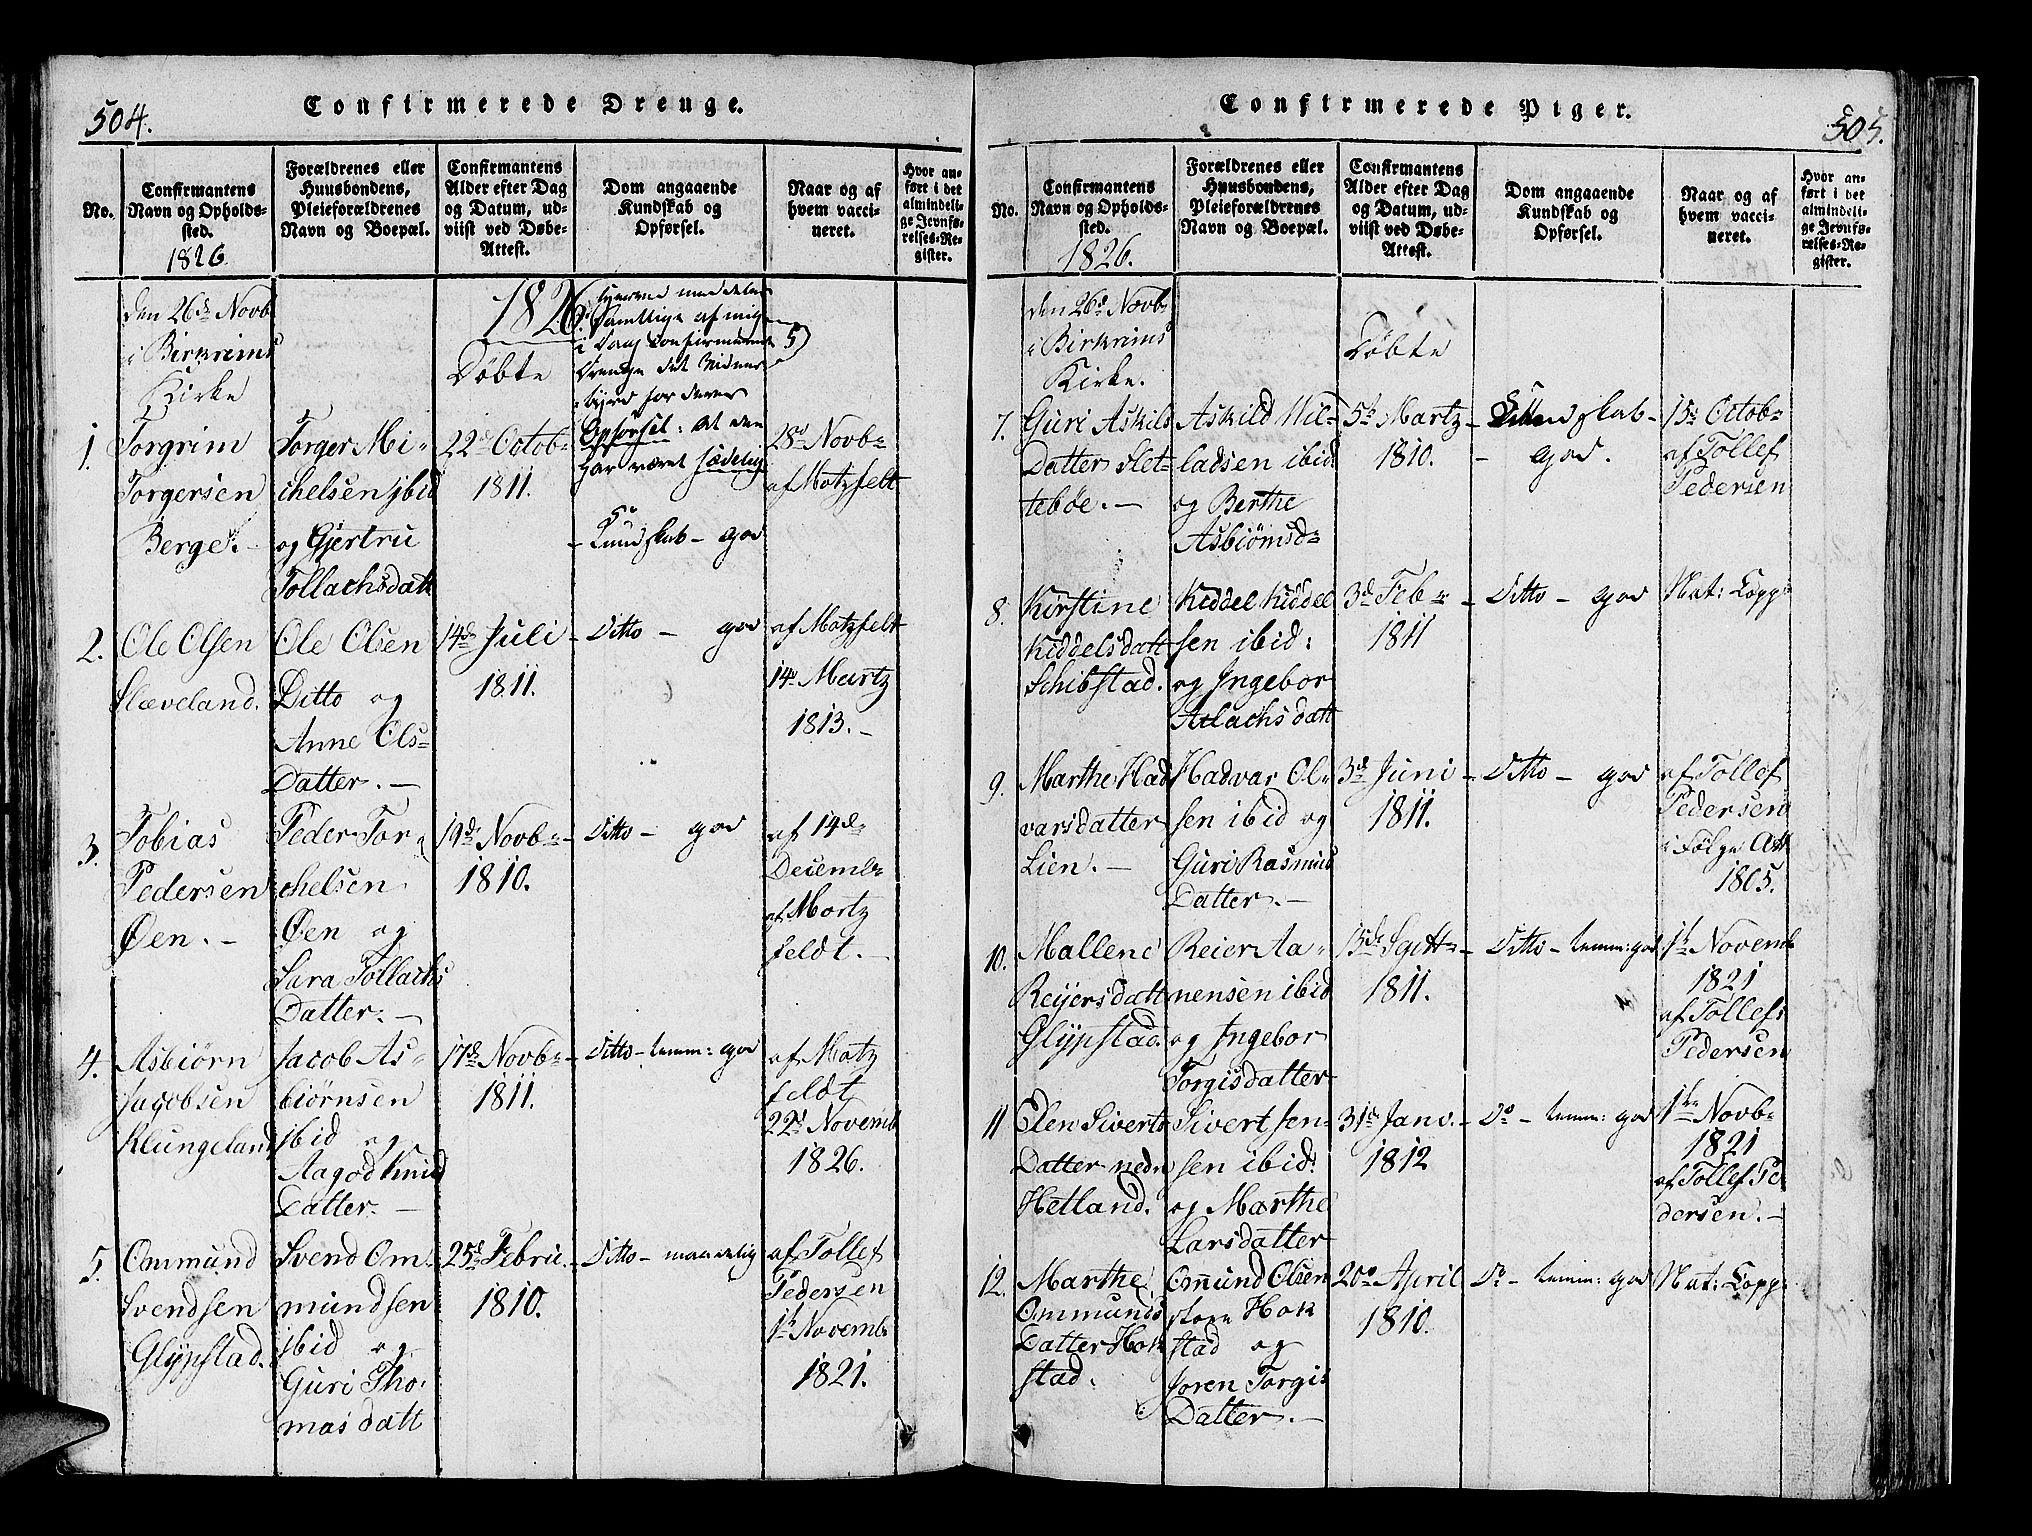 504.
Confirmerede Drenge.
No.
Confirmantens
Navn og Opholds-
sted.
1826
Forældrenes eller
Huusbondens,
Pleieforældrenes
Navn og Boepæl.
Confirmantens
Alder efter Dag
og Datum, ud-
viist ved Døbe-
Attest.
Dom angaaende
Kundskab og
Opførsel.
Naar og af
hvem vacci-
neret.
Hvor an-
ført i det
almindeli-
ge Jevnfø-
relses-Re-
gister.
den 26de Novb
i Birkrims
Kirke
1826
Døbte
meddeles
Samtlige af mig
i Dag Confirmerede
Drenge det Vidnes-
byrd for deres
Opførsel: at den
har været sædelig
5
1.
Torgrim
Torgersen
Berge. -
Torger Mi-
chelsen jbid
og Gjertru
Tollachsdatt
22de Octob-
1811.
- Kundskab - god
28d Novb-
af Motzfelt
2.
Ole Olsen
Slæveland.
Ole Olsen
Ditto og
Anne Ols-
Datter. -
14de Juli
1811.
- Ditto - god
af Motzfelt
14d Martz
1813. -
3.
Tobias
Pedersen
Øen. -
Peder Tor-
chelsen
Øen og
Sara Tollachs
Datter. -
19de Novb-
1810.
- Ditto - god
af 14de
Decemb-
af Mortz
feldt. -
4.
Asbiørn
Jacobsen
Klungeland
Jacob As-
biørnsen
jbid og
Aagod Knud
Datter. -
17de Novb-
1811.
- Ditto - temm: god
af Motz
feldt
22d Novemb
1826.
5.
Ommund
Svendsen
Glypstad.
Svend Om-
mundsen
jbid og
Guri Tho-
mas datt
25d Febru.
1810.
- Ditto - maadelig
af Tollef
Pedersen
1st Novemb
1821.
505.
Confirmerede Piger.
No.
Confirmantens
Navn og Opholds-
sted.
1826.
Forældrenes eller
Huusbondens,
Pleieforældrenes
Navn og Boepæl.
Confirmantens
Alder efter Dag
og Datum, ud-
viist ved Døbe-
Attest.
Dom angaaende
Kundskab og
Opførsel.
Naar og af
hvem vacci-
neret.
Hvor an-
ført i det
almindeli-
ge Jevnfø-
relses-Re-
gister.
den 26d Novb
i Birkrims
Kirke.
Døbte
7.
Guri Askilds
Datter Slet-
tebøe. -
Askild Wil-
ladsen ibid
og Berthe
Asbiørnsd-
5te Martz
1810.
- Kundskab -
- god.
15d Octob-
af Tollef
Pedersen
8.
Kirstine
Kiddelsdatt
Schibstad.
Kiddel Kiddel
sen ibid:
og Ingebor
Atlachs datt
3de Feb-
1811
- Ditto - god
Nat: Copp:
9.
Marthe Had
varsdatter
Lien. -
Hadvar Ol-
sen ibid og
Guri Rasmus
Datter. -
3d Juni
1811.
- Ditto - god
af Tollef
Pedersen
i Følge Att
1805.
10.
Mallene
Reijersdatt
Glypstad.
Reier Aa-
nensen ibid
og Ingebor
Torgisdatter
15de Sept-
1811.
- Ditto - temm: god
1st Novemb
1821
af Tollef
Pedersen
11
Elen Siverts
Datter nedr
Hetland.
Sivert Sen-
sen ibid:
og Marthe
Larsdatter
31de Janv.
1812
- Do - temm: god
1ste Novb-
1821
af Tollef Pe
dersen. -
12.
Marthe
Ommunds
Datter Hok
stad.
Ommund Olsen
store Hok
stad og
Joren Torgis
Datter. -
20de April
1810.
Do - temm: god
Nat: Copp: